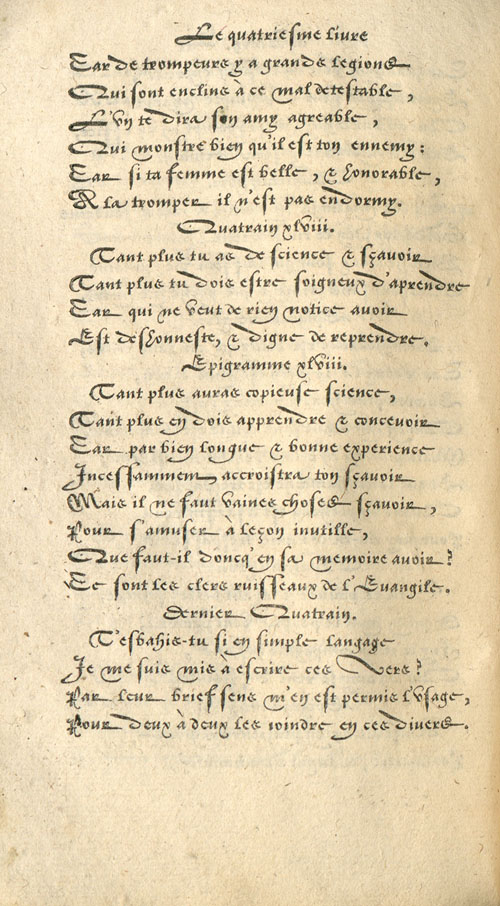 Le quatriesme livre
Car de trompeurs y a grands legions
Qui sont enclins à ce mal detestable,
L'vn te dira son amy agreable,
Qui monstre bien qu'il est ton ennemy:
Car si ta femme est belle, & honorable,
A la tromper il n'est pas endormy.
Quatrain xlviii.
Tant plus tu as de science & sçavoir
Tant plus tu dois estre soigneux d'aprendre
Car qui ne veut de rien notice avoir
Est deshonneste, & digne de reprendre.
Epigramme xlviii.
Tant plus auras copieuse science,
Tant plus en dois apprendre & concevoir
Car par bien longue & bonne experience
Incessamment accroistra ton sçavoir
Mais il ne faut vaines choses sçavoir,
Pour s'amuser à leçon inutille,
Que faut-il doncq' en sa memoire avoir?
Ce sont les clers ruisseaux de l'Evangile.
Dernier Quatrain.
T'esbahis-tu si en simple langage
Je me suis mis à escrire ces Vers?
Par leur brief sens m'en est permis l'vsage,
Pour deux à deux les ioindre en ces divers.